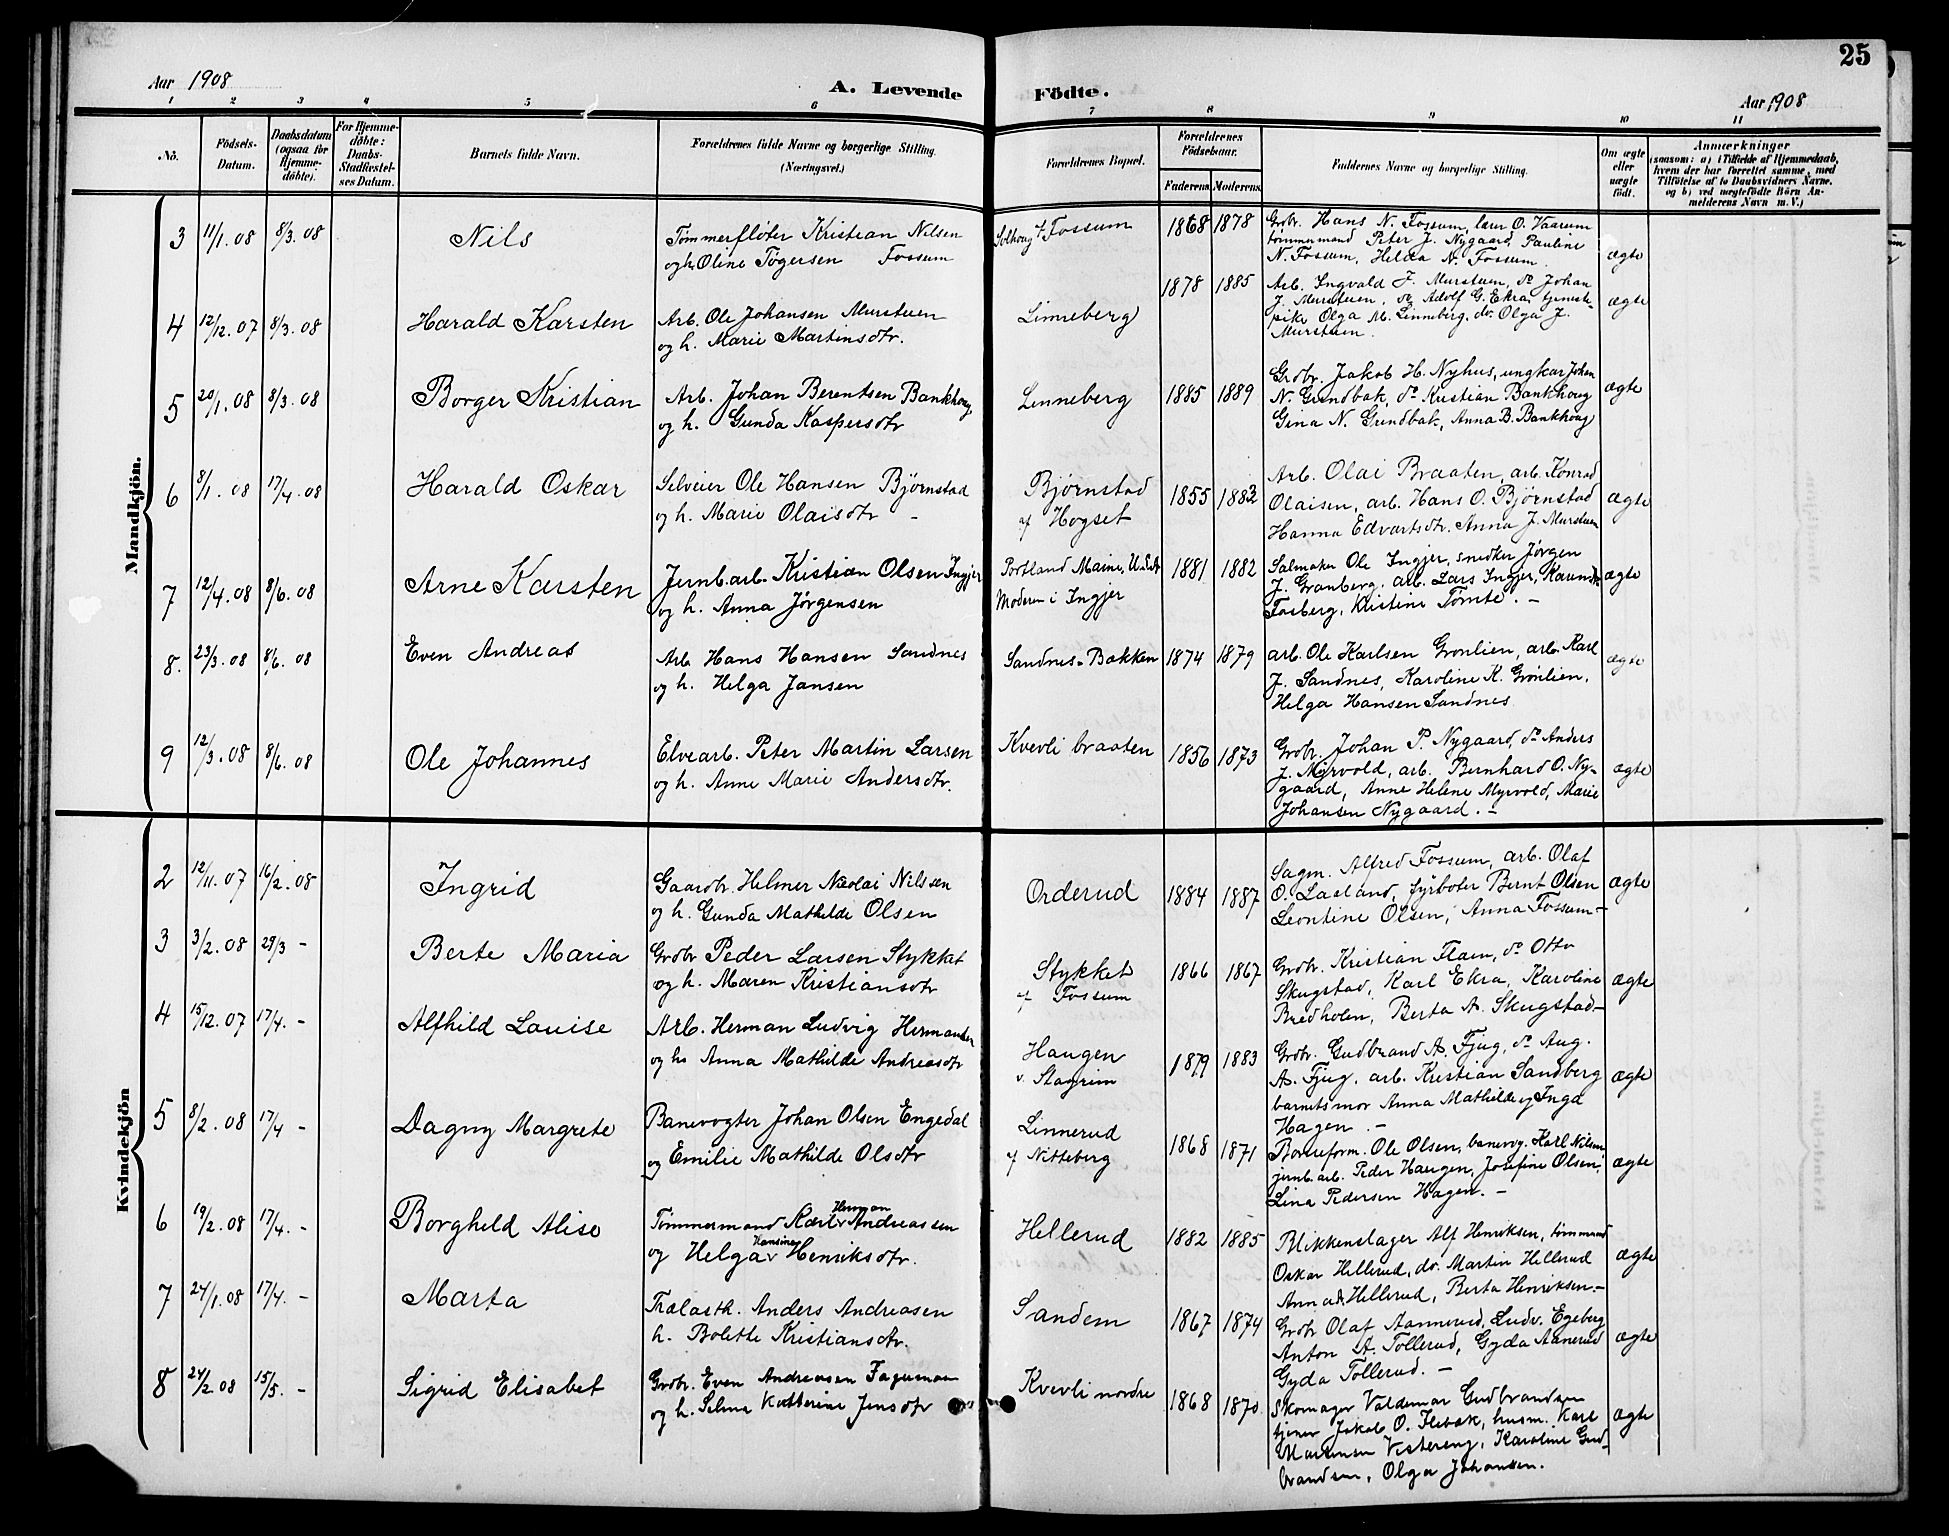 25
Aar 1908
A. Levende Födte.
Aar 1908
1 2 3 4 5 6 7 8 9 10 11
No.
Födsels-
Datum.
Daabsdatum
(ogsaa for
Hjemme-
döbte).
For Hjemme-
döbte:
Daabs-
Stadfæstel-
ses Datum.
Barnets fulde Navn.
Forældrenes fulde Navne og borgerlige Stilling.
(Næringsvei.)
Forældrenes Bopæl.
Forældrenes
Födselsaar.
Faderens. Moderens.
Faddernes Navne og borgerlige Stilling.
Om ægte
eller
uægte
födt.
Anmærkninger
(saasom: a) i Tilfælde af Hjemmedaab,
hvem der har forrettet samme, med
Tilföielse af to Daabsvidners Navne,
og b) ved uægtefödte Börn An-
melderens Navn m. V.)
Mandkjön.
3 11/1. 08 8/3. 08 Nils
Tømmerfløter Kristian Nilsen
og h. Oline Tøgersen Fossum
Solhoug f Fossum
1868 1878
Grbr. Hans N. Fossum, lærer O. Vaarum
tømmermand Peter J. Nygaard, Pauline
N. Fossum, Helea N. Fossum.
ægte
4 12/12. 07 8/3. 08 Harald Karsten
Arb. Ole Johansen Murstuen
og h. Marie Martinsdtr.
Linneberg
1878 1885
Arb. Ingvald J. Murstuen, do Johan
J. Murstuen, do Adolf G. Ekra, tjeneste-
pike Olga M. Linneberg, do. Olga J.
Murstuen.
ægte
5 20/1. 08 8/3. 08 Borger Kristian
Arb. Johan Berentsen Bankhoug
og h. Gunda Kaspersdtr
Linneberg
1885 1889
Grdbr. Jakob H. Nyhus, ungkar Johan
N. Grundbak, do Kristian Bankhoug
Gina N. Grundbak, Anna B. Bankhoug
ægte
6 8/1. 08 17/4. 08 Harald Oskar
Selveier Ole Hansen Bjørnstad
og h. Marie Olaisdtr -
Bjørnstad
af Hogset
1855 1882
Arb. Olai Braaten, arb. Konrad
Olaisen, arb. Hans O. Bjørnstad
Hanna Edvartsdtr. Anna J. Murstuen
ægte
7 12/4. 08 8/6. 08 Arne Karsten
Jernb.arb. Kristian Olsen Ingjer
og h. Anna Jørgensen
Portland Maine, U.S.A
Moderen i Ingjer
1881 1882
Salmaker Ole Ingjer, snedker Jørgen
J. Granberg, arb. Lars Ingjer,
Fosberg, Kristine Tomte. -
ægte
8. 23/3. 08 8/6. 08 Even Andreas
Arb Hans Hansen Sandnes
og h. Helga Jansen
Sandnes-Bakken
1874 1879
arb. Ole Karlsen Grønlien, arb. Karl
J. Sandnes, Karoline K. Grønlien,
Helga Hansen Sandnes
ægte
9 12/3. 08 8/6. 08 Ole Johannes
Elvearb. Peter Martin Larsen
og h. Anne Marie Andersdtr.
Kvevli braaten
1856 1873
Grdbr. Johan P. Nygaard, do Anders
J. Myrvold, arb. Bernhard O. Ny-
gaard, Anne Helene Myrvold, Marie
Johansen Nygaard. -
ægte
Kvindekjön
2 12/11. 07 16/2. 08 Ingrid
Gaardbr. Helmer Nicolai Nilssen
og h. Gunda Mathilde Olsen
Orderud
1884 1887
Sagm. Alfred Fossum, arb. Olaf
O. Laaland, fyrbøter Bernt Olsen
Leontine Olsen, Anna Fossum-
ægte
3 3/2. 08 29/3 - Berte Maria
Grdbr Peder Larsen Stykket
og h. Maren Kristiansdtr
Stykket
af Fossum
1866 1867
Grdbr. Kristian Flaen, do Otto
Skugstad, Karl Ekra, Karoline
Bredholen, Berta A. Skugstad-
ægte
4 15/12. 07 17/4. - Alfhild Louise
Arb. Herman Ludvig Hermansen
og h. Anna Mathilde Andreasdtr
Haugen
v. Stagrim
1879 1883
Grdbr. Gudbrand A. Fjug, do Aug.
A. Fjug, arb. Kristian Sandberg
barnets mor Anna Mathilde og Inga
Hagen. -
ægte
5 8/2. 08 17/4 - Dagny Margrete
Banevogter Johan Olsen Engedal
og Emilie Mathilde Olsdtr
Linnerud
af Nitteberg
1868 1871
Baneform. Ole Olsen, banevog. Karl Nilsen
jernb. arb. Peder Haugen, Josefine Olsen,
Lina Pedersen Hagen. -
ægte
6 19/2. 08 17/4. - Borghild Alise
Tømmermand Karl Herman Andreassen
og Helga Hansine Henriksdtr.
Hellerud
1882 1885
Blikkenslager Alf Henriksen, tømmermd
Oskar Hellerud, do. Martin Hellerud
Hellerud, Berta Henriksen.-
ægte
7 24/1. 08 17/4. - Marta
Trælasth. Anders Andreasen
h. Bolette Kristiansdtr.
Sandem
1867 1874
Grdbr Olaf Aannerud, Ludv. Egeberg
Anton A. Tollerud, Gyda Aanerud
Gyda Tollerud. -
ægte
8 24/2. 08 15/5. - Sigrid Elisabet
Grdbr. Even Andreasen Fagermoen
og h. Selma Katherine Jensdtr
Kvevli nordre
1868 1870
Skomager Valdemar Gudbrandsen
tjener Jakob O. Flebak, husm. Karl
Martinsen Vestereng, Karoline Gud-
brandsen, Olga Johansen.
ægte